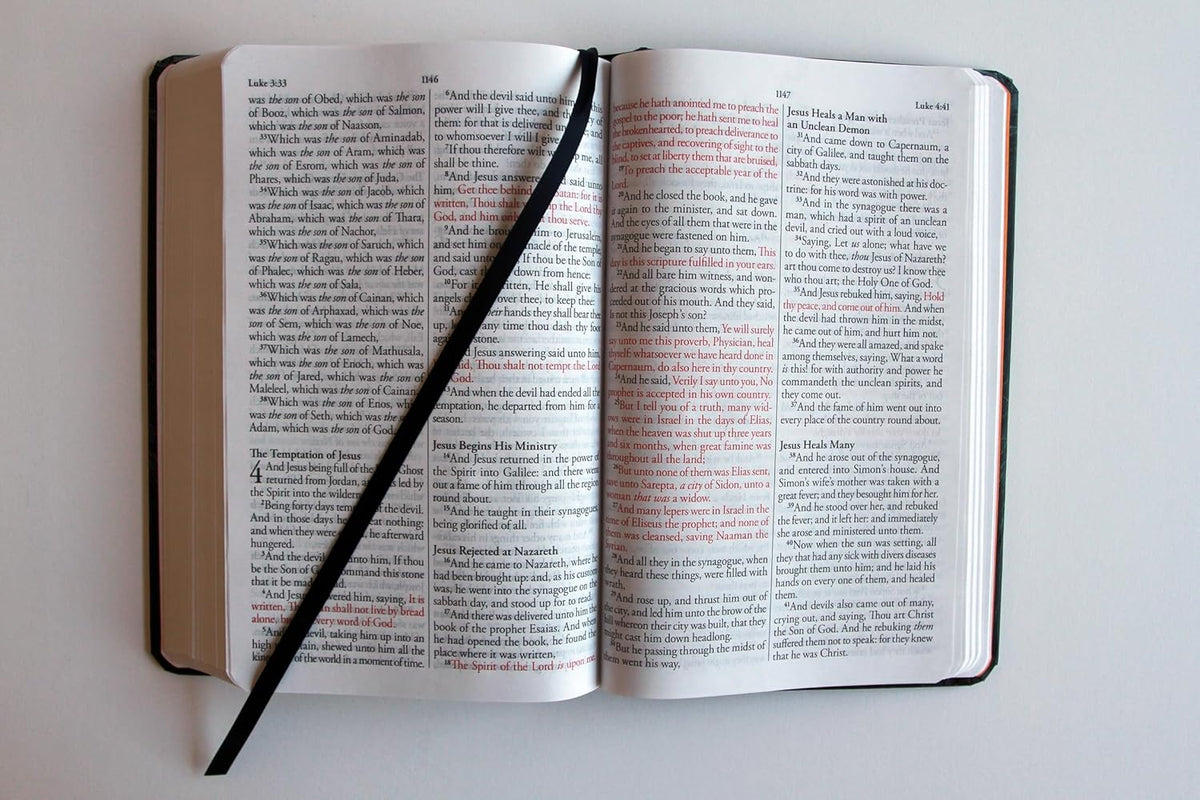 Luke 3:33
1146
was the son of Obed, which was the son
of Booz, which was the son of Salmon,
which was the son of Naasson,
33Which was the son of Aminadab,
which was the son of Aram, which was
the son of Esrom, which was the son of
Phares, which was the son of Juda,
34Which was the son of Jacob, which
was the son of Isaac, which was the son of
Abraham, which was the son of Thara,
which was the son of Nachor,
35Which was the son of Saruch, which
was the son of Ragau, which was the son
of Phalec, which was the son of Heber,
which was the son of Sala,
36Which was the son of Cainan, which
was the son of Arphaxad, which was the
son of Sem, which was the son of Noe,
which was the son of Lamech,
37Which was the son of Mathusala,
which was the son of Enoch, which was
the son of Jared, which was the son of
Maleleel, which was the son of Cainan
38Which was the son of Enos, wh
was the son of Seth, which was the
Adam, which was the son of God
The Temptation of Jesus
4 And Jesus being full of the Ghost
returned from Jordan, led by
the Spirit into the wildern
2Being forty days of the devil.
And in those days he eat nothing:
and when they were he afterward
hungered.
3And the devil unto him, If thou
be the Son of G command this stone
that it be made
4And Jesus ered him, saying, It is
written, n shall not live by bread
alone, very word of God.
5And evil, taking him up into an
high tain, shewed unto him all the
of the world in a moment of time.
6And the devil said unto him this
power will I give thee, and of
them: for that is delivered un and
to whomsoever I will I give
7If thou therefore wilt me, all
shall be thine.
8And Jesus answered said unto
him, Get thee behind Satan: for it is
written, Thou shalt the Lord thy
God, and him only thou serve.
9And he bro him to Jerusalem,
and set him on nacle of the temple,
and said unto If thou be the Son of
God, cast down from hence:
10For it written, He shall give his
angels over thee, to keep thee:
And their hands they shall bear thee
up, any time thou dash thy foot
stone.
Jesus answering said unto him,
Thou shalt not tempt the Lord
God.
And when the devil had ended all the
temptation, he departed from him for a
season.
Jesus Begins His Ministry
14And Jesus returned in the power of
the Spirit into Galilee: and there went
out a fame of him through all the region
round about.
15And he taught in their synagogues,
being glorified of all.
Jesus Rejected at Nazareth
16And he came to Nazareth, where he
had been brought up: and, as his custom
was, he went into the synagogue on the
sabbath day, and stood up for to read.
17And there was delivered unto him the
book of the prophet Esaias. And when
he had opened the book, he found the
place where it was written,
18The Spirit of the Lord is upon me,
1147
Luke 4:41
because he hath anointed me to preach the
gospel to the poor; he hath sent me to heal
the brokenhearted, to preach deliverance to
the captives, and recovering of sight to the
blind, to set at liberty them that are bruised,
19To preach the acceptable year of the
Lord.
20And he closed the book, and he gave
it again to the minister, and sat down.
And the eyes of all them that were in the
synagogue were fastened on him.
21And he began to say unto them, This
day is this scripture fulfilled in your ears.
22And all bare him witness, and won-
dered at the gracious words which pro-
ceeded out of his mouth. And they said,
Is not this Joseph's son?
23And he said unto them, Ye will surely
say unto me this proverb, Physician, heal
thyself: whatsoever we have heard done in
Capernaum, do also here in thy country.
24And he said, Verily I say unto you, No
prophet is accepted in his own country.
25But I tell you of a truth, many wid-
ows were in Israel in the days of Elias,
when the heaven was shut up three years
and six months, when great famine was
throughout all the land;
26But unto none of them was Elias sent,
save unto Sarepta, a city of Sidon, unto a
woman that was a widow.
27And many lepers were in Israel in the
time of Eliseus the prophet; and none of
them was cleansed, saving Naaman the
Syrian.
28And all they in the synagogue, when
they heard these things, were filled with
wrath,
29And rose up, and thrust him out of
the city, and led him unto the brow of the
hill whereon their city was built, that they
might cast him down headlong.
30But he passing through the midst of
them went his way,
Jesus Heals a Man with
an Unclean Demon
31And came down to Capernaum, a
city of Galilee, and taught them on the
sabbath days.
32And they were astonished at his doc-
trine: for his word was with power.
33And in the synagogue there was a
man, which had a spirit of an unclean
devil, and cried out with a loud voice,
34Saying, Let us alone; what have we
to do with thee, thou Jesus of Nazareth?
art thou come to destroy us? I know thee
who thou art; the Holy One of God.
35And Jesus rebuked him, saying, Hold
thy peace, and come out of him. And when
the devil had thrown him in the midst,
he came out of him, and hurt him not.
36And they were all amazed, and spake
among themselves, saying, What a word
is this! for with authority and power he
commandeth the unclean spirits, and
they come out.
37And the fame of him went out into
every place of the country round about.
Jesus Heals Many
38And he arose out of the synagogue,
and entered into Simon's house. And
Simon's wife's mother was taken with a
great fever; and they besought him for her.
39And he stood over her, and rebuked
the fever; and it left her: and immediately
she arose and ministered unto them.
40Now when the sun was setting, all
they that had any sick with divers diseases
brought them unto him; and he laid his
hands on every one of them, and healed
them.
41And devils also came out of many,
crying out, and saying, Thou art Christ
the Son of God. And he rebuking them
suffered them not to speak: for they knew
that he was Christ.